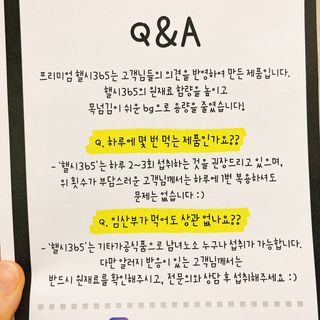 Q&A
프리미엄 핼시365는 고객님들의 의견을 반영하여 만든 제품입니다.
핼시365의 원재료 함량을 높이고
목넘김이 쉬운 bg으로 용량을 줄였습니다!
Q. 하루에 몇 번 먹는 제품인가요??
- '핼시365'는 하루 2~3회 섭취하는 것을 권장드리고 있으며,
위 횟수가 부담스러운 고객님께서는 하루에 1번 복용하셔도
문제는 없습니다 :)
Q. 임산부가 먹어도 상관 없나요??
- '핼시365'는 기타가공식품으로 남녀노소 누구나 섭취가 가능합니다.
다만 알러지 반응이 있는 고객님께서는
반드시 원재료를 확인해주시고, 전문의와 상담 후 섭취해주세요 :)